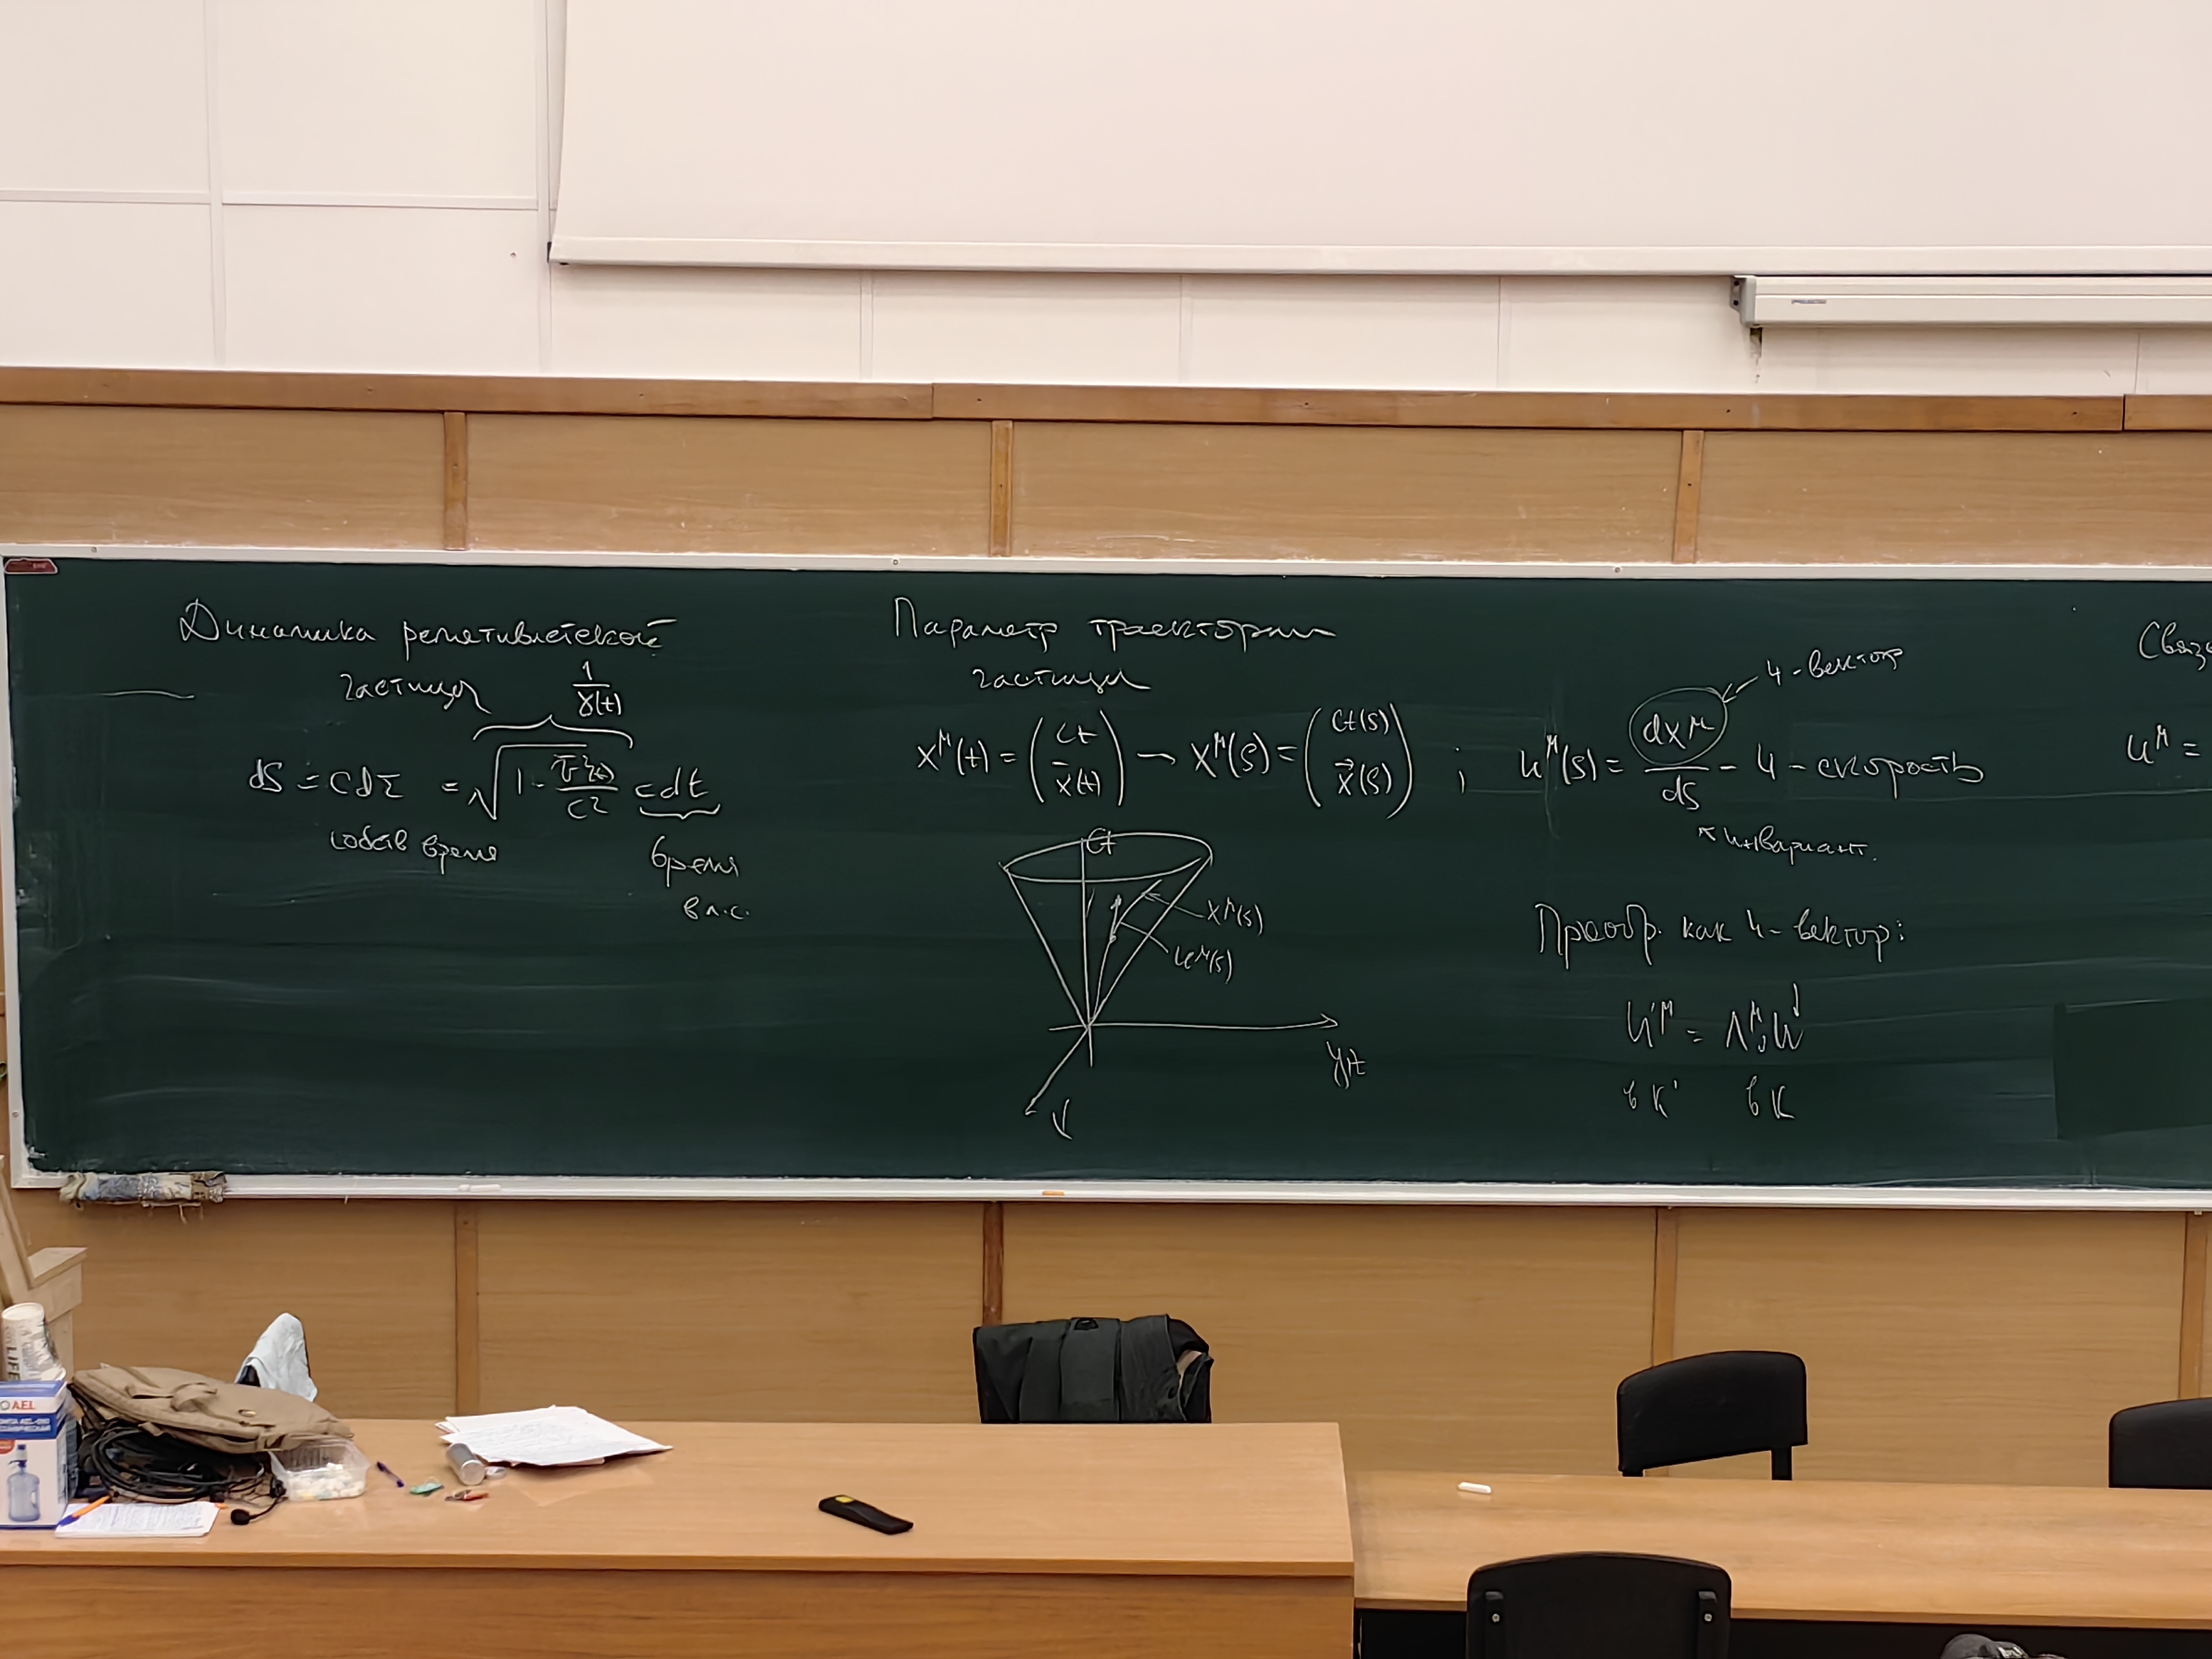 Динамика релятивистской
частицы
1/γ(t)
dS = cdτ = √(1 - v²(t)/c²) cdt
собств время
время
в л.с.
Параметр траектории
частицы
x^μ(t) = (ct, x̄(t)) → x^μ(s) = (ct(s), x⃗(s)) ;
ct
x^μ(s)
u^μ(s)
4-вектор
u^μ(s) = dx^μ/ds - 4-скорость
инвариант.
Преобр. как 4-вектор:
u'^μ = Λ^μ_ν u^ν
в K' в K
u^μ =
A.E.L.
LIFE